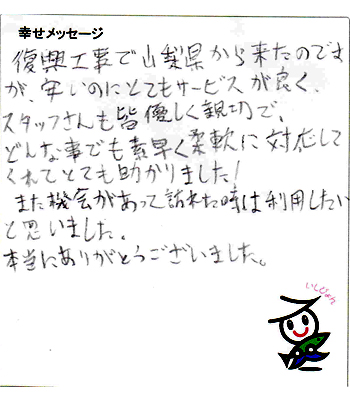 幸せメッセージ
復興工事で山梨県から来たのです
が、安いのにとてもサービスが良く、
スタッフさんも皆優しく親切で、
どんな事でも素早く柔軟に対応して
くれてとても助かりました!
また機会があって訪れた時は利用したい
と思いました。
本当にありがとうございました。
いしぴょん